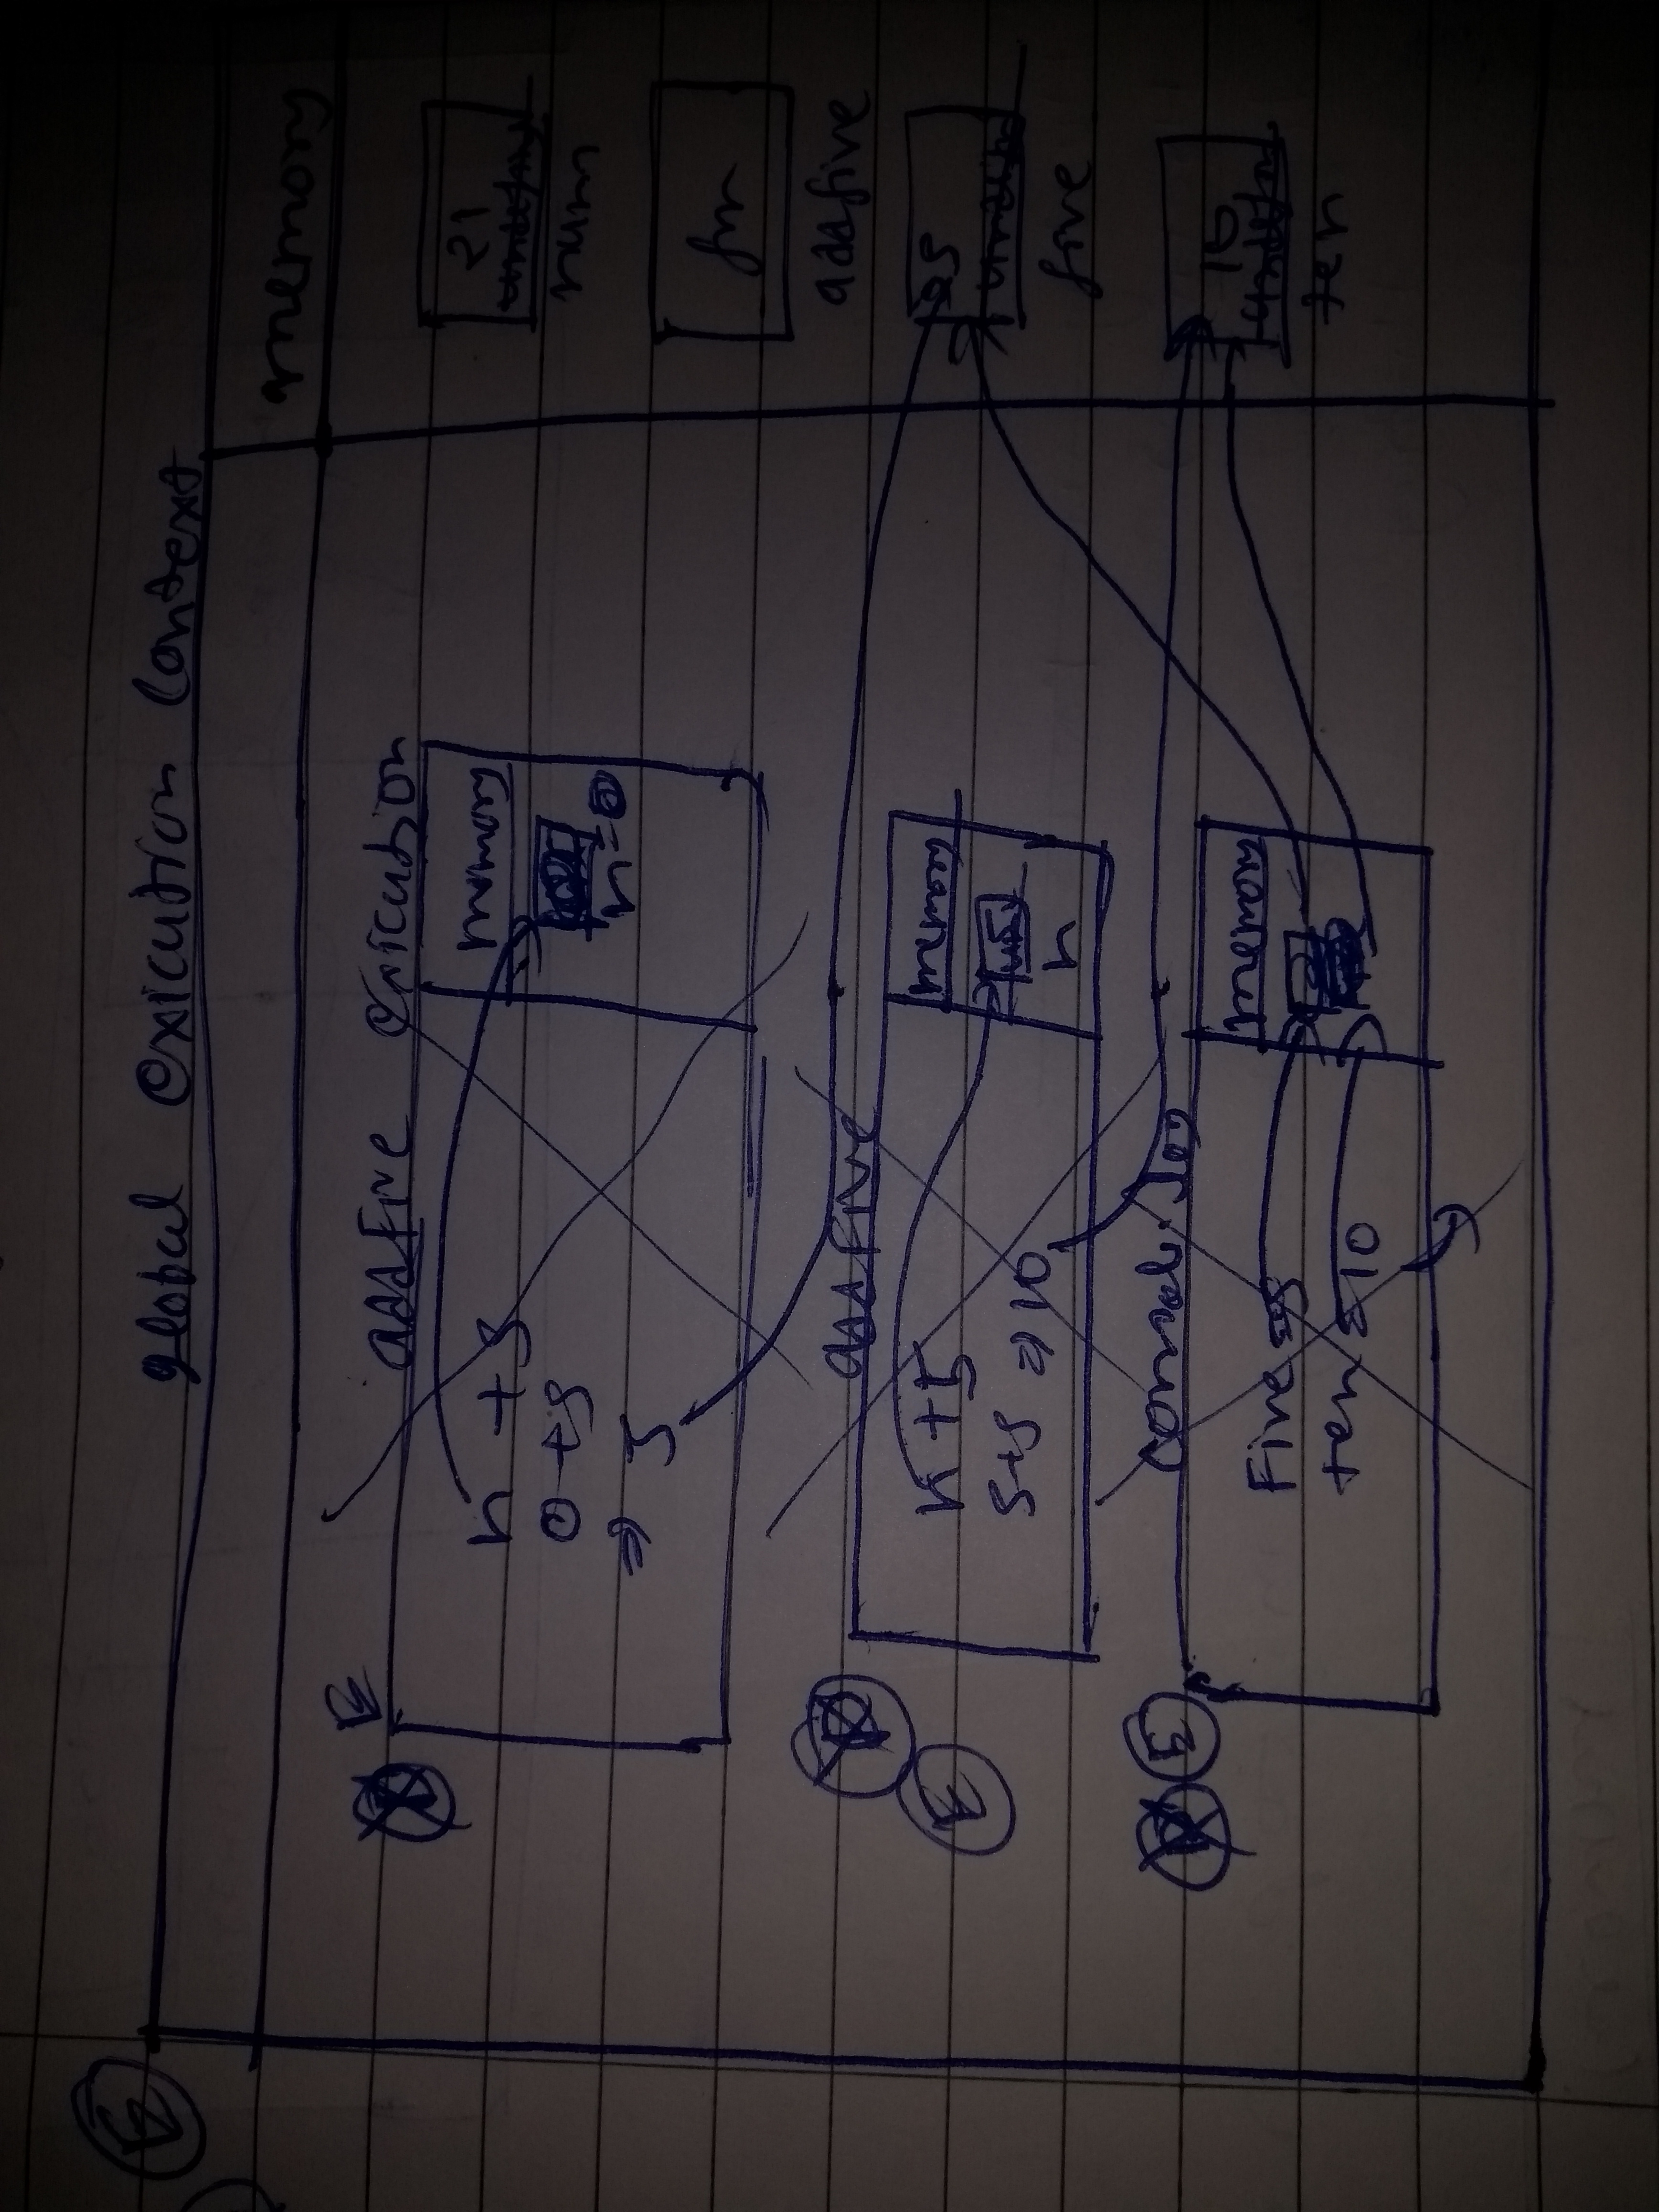 global exicution Context
memory
21
num
fn
addfive
5
five
10
ten
addFive exicution
memory
n=0
n +5
0 +5
⇒ 5
addFive
memory
5
n
n +5
5+5 ⇒ 10
Console.log
memory
Five 5
ten 10